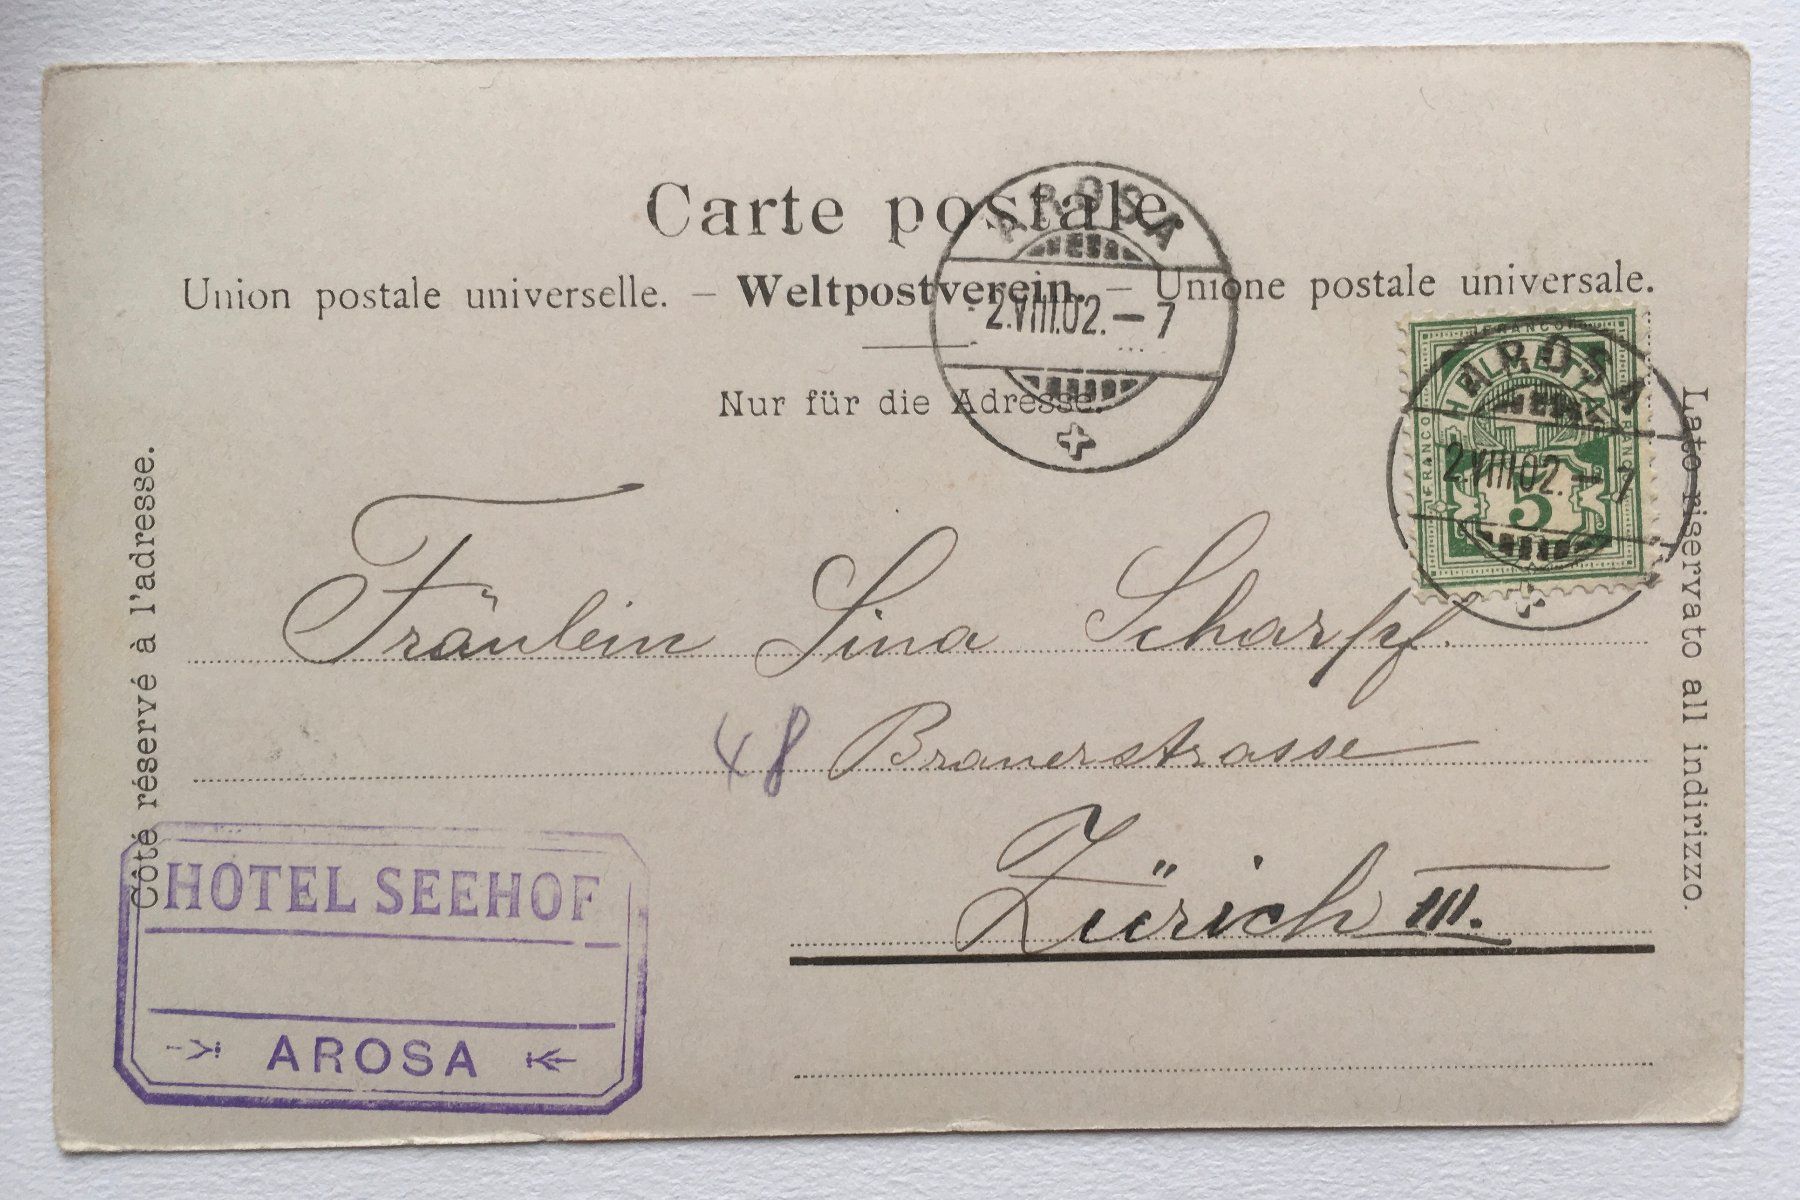 Carte postale.
Union postale universelle. – Weltpostverein. – Unione postale universale.
Nur für die Adresse.
AROSA
2.VIII.02. – 7
FRANCO
HELVETIA
FRANCO
FRANCO
5
AROSA
2.VIII.02. – 7
Côté réservé à l'adresse.
Lato riservato all indirizzo.
Fräulein Lina Scharpf.
48 Brauerstrasse
Zürich III.
HOTEL SEEHOF
AROSA